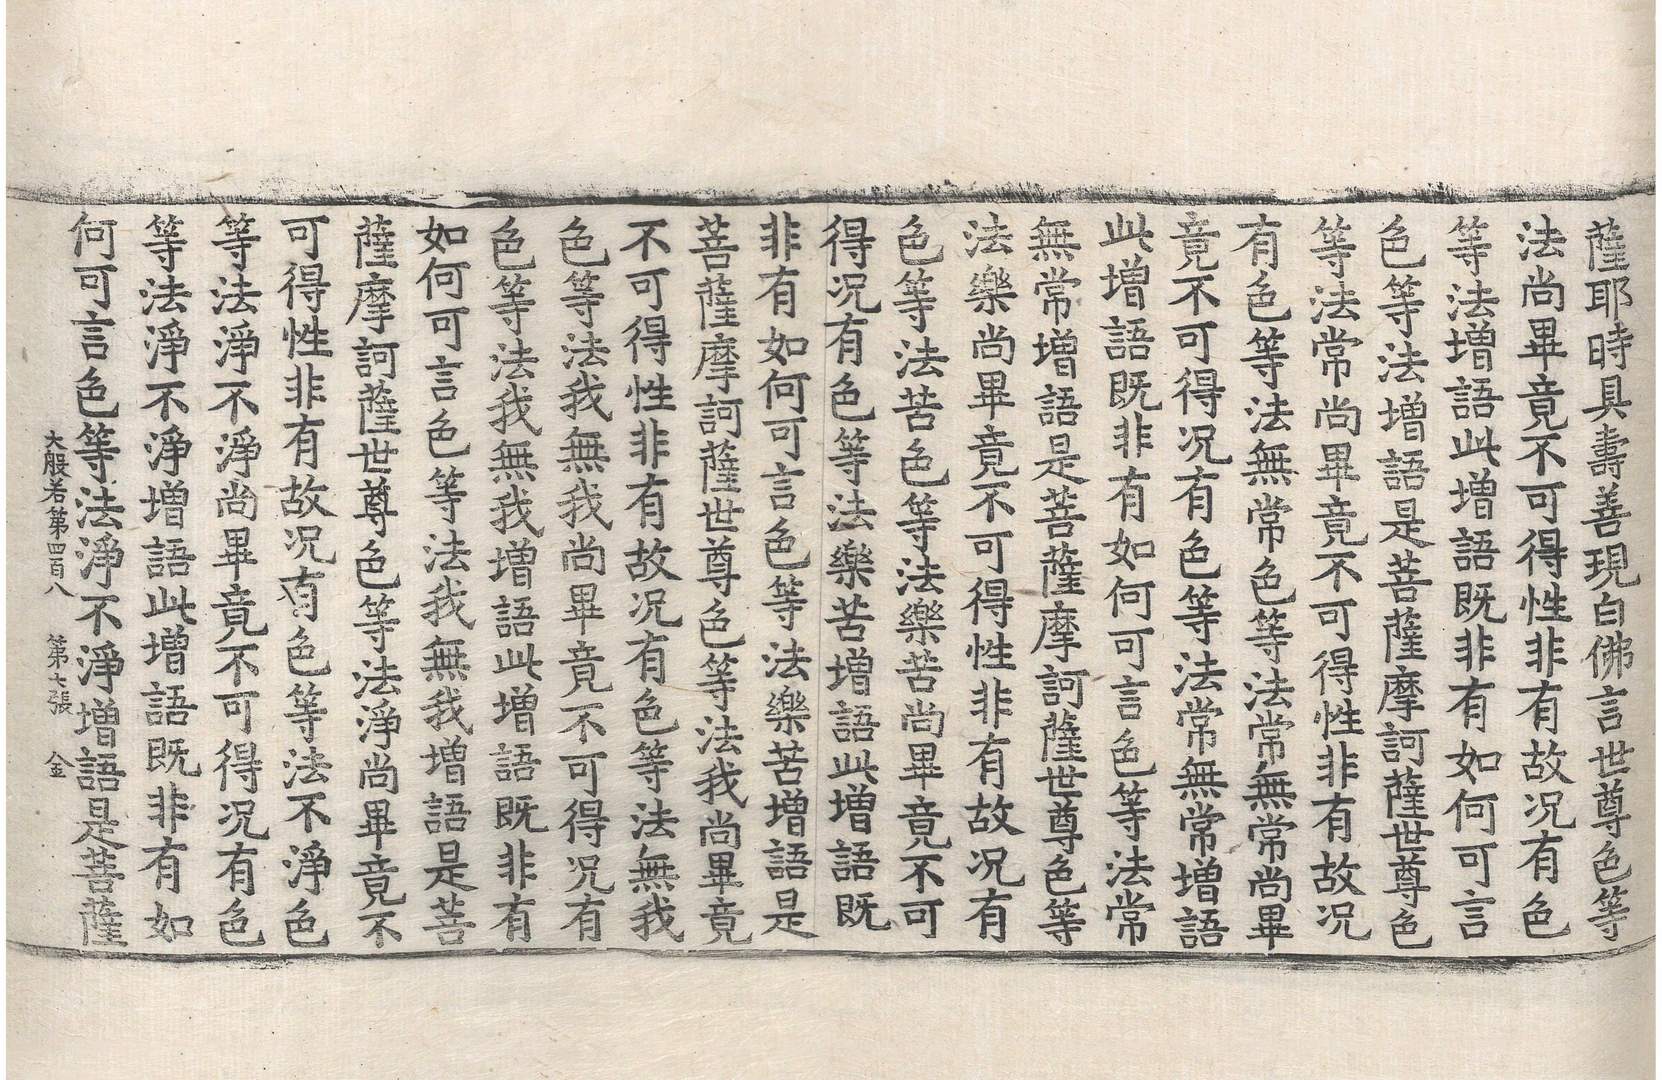 薩耶時具壽善現白佛言世尊色等
法尚畢竟不可得性非有故况有色
等法增語此增語既非有如何可言
色等法增語是菩薩摩訶薩世尊色
等法常尚畢竟不可得性非有故况
有色等法無常色等法常無常尚畢
竟不可得况有色等法常無常增語
此增語既非有如何可言色等法常
無常增語是菩薩摩訶薩世尊色等
法樂尚畢竟不可得性非有故况有
色等法苦色等法樂苦尚畢竟不可
得况有色等法樂苦增語此增語既
非有如何可言色等法樂苦增語是
菩薩摩訶薩世尊色等法我尚畢竟
不可得性非有故况有色等法無我
色等法我無我尚畢竟不可得况有
色等法我無我增語此增語既非有
如何可言色等法我無我增語是菩
薩摩訶薩世尊色等法淨尚畢竟不
可得性非有故况有色等法不淨色
等法淨不淨尚畢竟不可得况有色
等法淨不淨增語此增語既非有如
何可言色等法淨不淨增語是菩薩
大般若第四百八 第張 金